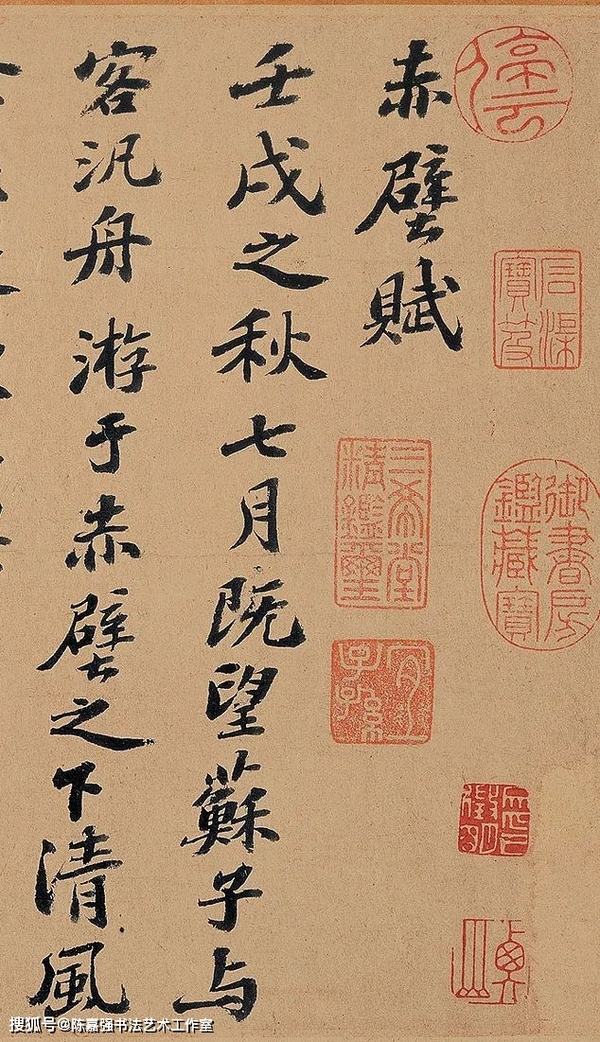 赤壁賦
壬戌之秋七月既望蘇子与
客汎舟游于赤壁之下清風
石渠寶笈
御書房鑑藏寶
三希堂精鑑璽
宜子孫
搜狐号@陈嘉强书法艺术工作室